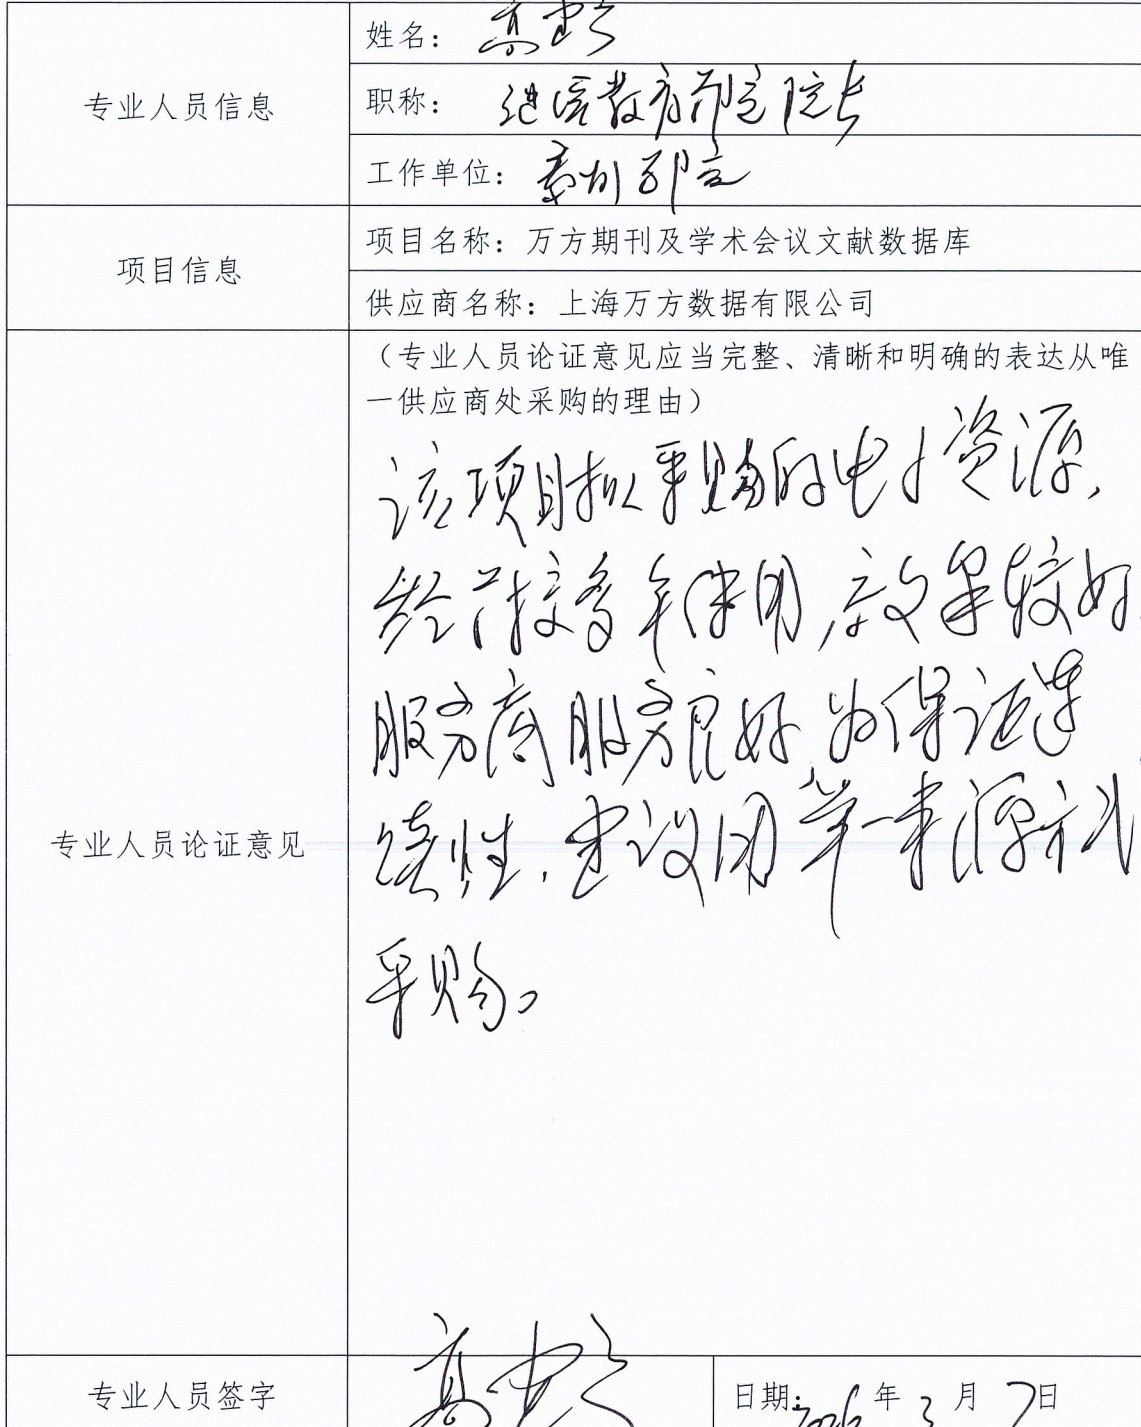 专业人员信息
姓名：高
职称：继续教育学院院长
工作单位：泰州学院
项目信息
项目名称：万方期刊及学术会议文献数据库
供应商名称：上海万方数据有限公司
（专业人员论证意见应当完整、清晰和明确的表达从唯
一供应商处采购的理由）
该项目拟采购的电子资源，
经学校多年使用，效果较好，
服务商服务良好 为保证连
专业人员论证意见
续性，建议用单一来源方式
采购。
专业人员签字
高
日期： 年 3 月 7日